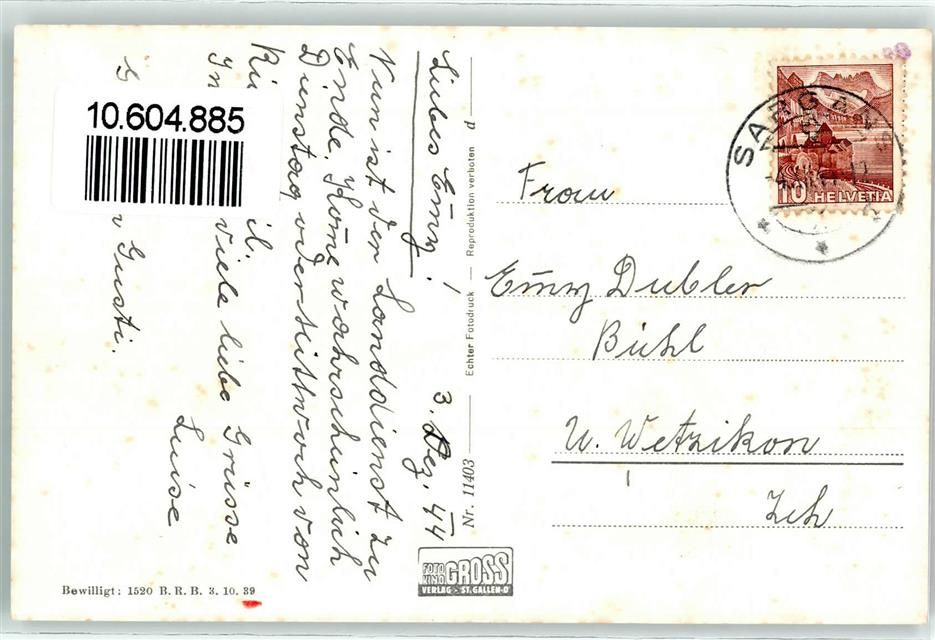 10.604.885
Liebes Emmy!
3. Dez. 44
Nun ist der Landdienst zu
Ende. Kome wahrscheinlich
Dienstag oder Mittwoch von
viele liebe Grüsse
Luise
Gusti.
Nr. 11403 Echter Fotodruck Reproduktion verboten
FOTO KINO GROSS
VERLAG · ST. GALLEN-O
Bewilligt: 1520 B. R. B. 3. 10. 39
SARGANS
10 HELVETIA
Frau
Emmy Dubler
Bühl
U. Wetzikon
Zch